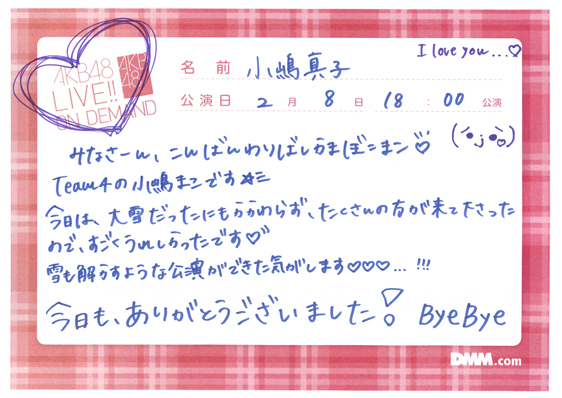 I love you...♡
AKB48
LIVE!!
ON DEMAND
AKB
48
名前 小嶋真子
公演日 2月8日 18:00 公演
みなさーん、こんばんわりばしかまぼこまこ♡
Team4の小嶋まこです☆ミ
今日は、大雪だったにもかかわらず、たくさんの方が来て下さった
ので、すごくうれしかったです♡♡
雪も解かすような公演ができた気がします♡♡♡...!!!
今日も、ありがとうございました! ByeBye
DMM.com